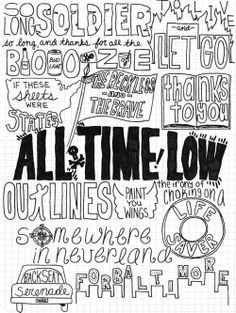 SO
LONG SOLDIER
TO LIVE
and
LET GO!
so long, and thanks for all the
BOOZE
IF THESE
sheets
WERE
STATES
THE RECKLESS
and
THE BRAVE
thanks
to you
ALL TIME LOW
OUTLINES
PAINT
YOU
WINGS
the irony of
choking on a
LIFE
SAVER
somewhere
in neverland
BACKSEAT
Serenade
FOR BALTIMORE